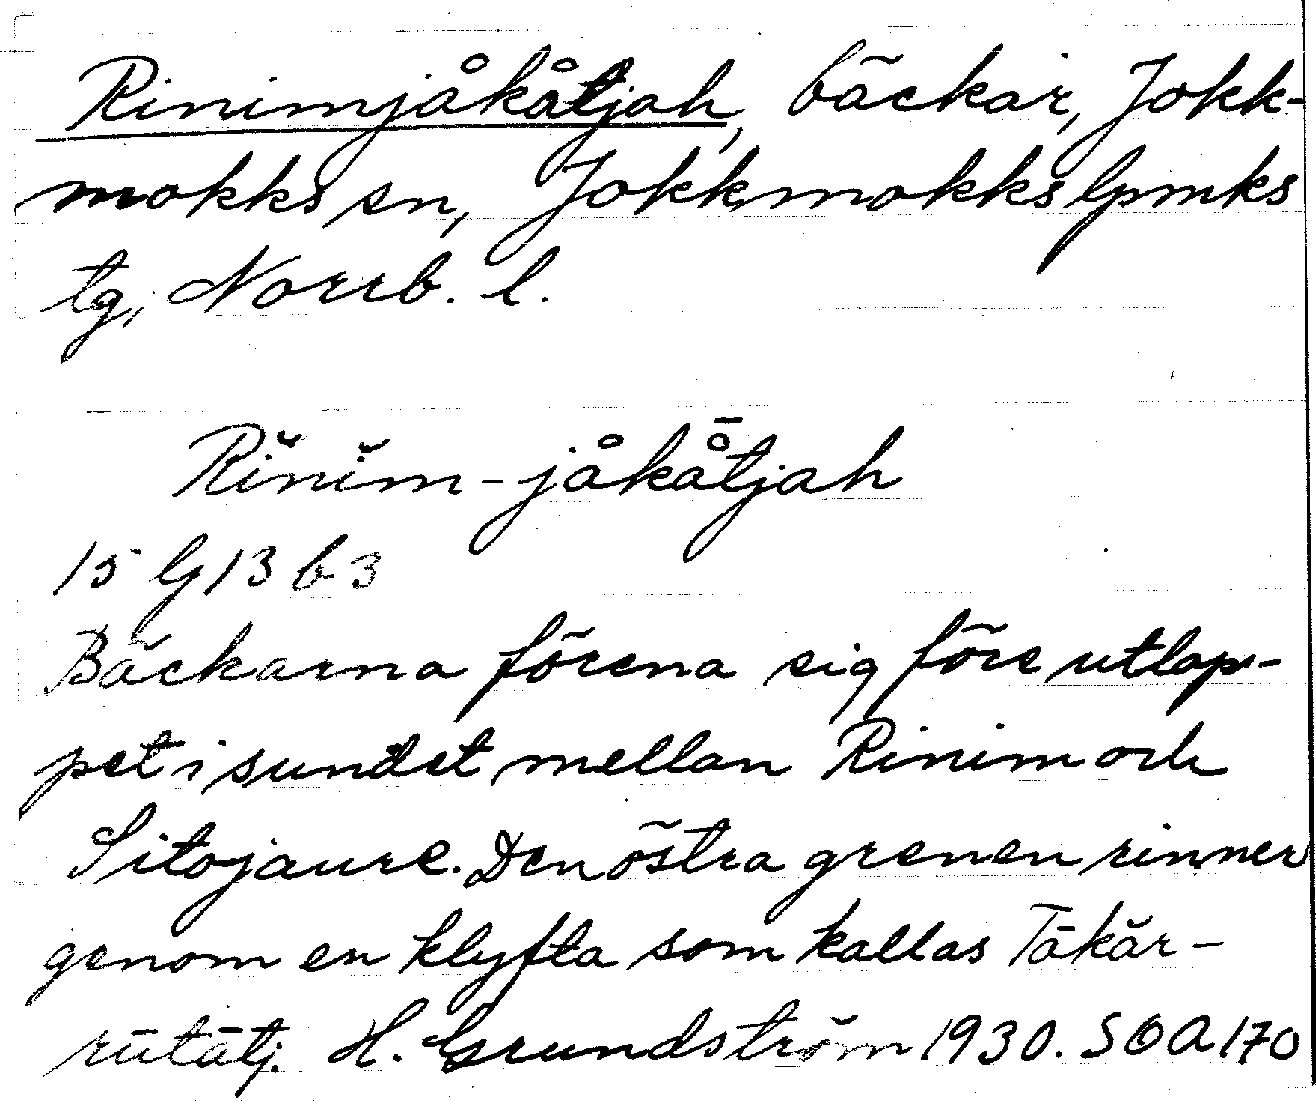 Rinimjåkåtjah, bäckar, Jokk-
mokks sn, Jokkmokks lpmks
tg, Norrb. l.
Rĭnĭm-jåkå̄tjah
15 G 13 b 3
Bäckarna förena sig före utlop-
pet i sundet mellan Rinim och
Sitojaure. Den östra grenen rinner
genom en klyfta som kallas Tākăr-
rūtātj. H. Grundström 1930. SOA 170